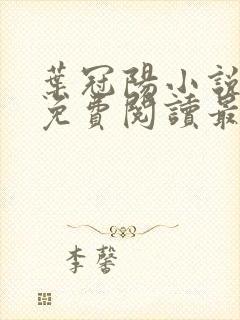 葉冠陽小說
免費閱讀最
李馨